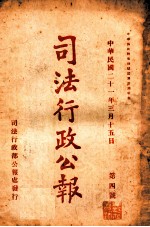 中華民國二十一年三月十五日
第四號
司法行政公報
司法行政部公報處發行